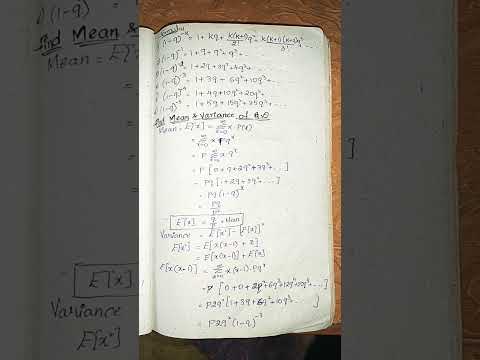 (1-q)^-k = 1 + kq + k(k+1)q²/2! + k(k+1)(k+2)q³/3! ...
(1-q)^-1 = 1 + q + q² + q³ + ...
(1-q)^-2 = 1 + 2q + 3q² + 4q³ + ...
(1-q)^-3 = 1 + 3q + 6q² + 10q³ + ...
(1-q)^-4 = 1 + 4q + 10q² + 20q³ + ...
(1-q)^-5 = 1 + 5q + 15q² + 35q³ + ...
Find Mean & Variance of
Mean = E[x] = ∞Σx=0 x.P(x)
= ∞Σx=0 x Pq^x
= P ∞Σx=0 x.q^x
= P [0 + q + 2q² + 3q³ + ...]
= Pq [1 + 2q + 3q² + ...]
= Pq (1-q)^-2
= Pq/P²
E[x] = q/P = Mean
Variance = E[x²] - [E[x]]²
E[x²] = E[x(x-1) + x]
= E[x(x-1)] + E[x]
E[x(x-1)] = ∞Σx=0 x(x-1).Pq^x
= P [0 + 0 + 2q² + 6q³ + 12q⁴ + 20q⁵ + ...]
= P2q² [1 + 3q + 6q² + 10q³ ... ]
= P2q² (1-q)^-3
Find Mean &
Mean = E[x]
E[x]
Variance
E[x²]